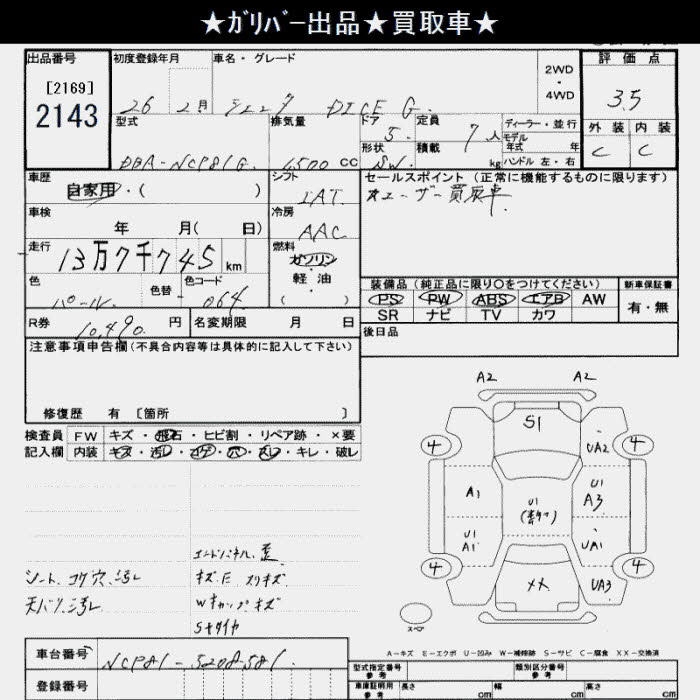 ★ｶﾞﾘﾊﾞｰ出品★買取車★
出品番号 初度登録年月 車名・グレード 2WD・4WD 評価点
[2169]
2143
26 2月 シエンタ DICE G. 3.5
型式 排気量 ドア 定員 ディーラー・並行
5. 7人 モデル年式 年 外装 内装
DBA-NCP81G. 1,500 CC 形状 SW. 積載 kg ハンドル 左・右 C C
車歴 シフト セールスポイント（正常に機能するものに限ります）
自家用・( ) IAT. ユーザー買取車.
車検 年 月( 日) 冷房 AAC
走行 13万7千745 km 燃料 ガソリン 軽・油 ( )
色 パール. 色替 - 色コード 064
装備品（純正品に限り○をつけてください） 新車保証書
PS PW ABS エアB AW 有・無
SR ナビ TV カワ
R券 10,490. 円 名変期限 月 日 後日品
注意事項申告欄(不具合内容等は具体的に記入して下さい)
修復歴 有 [箇所 ]
検査員 FW キズ・飛石・ヒビ割・リペア跡・×要
記入欄 内装 キズ・汚レ・コゲ・穴・スレ・キレ・破レ
A2 A2
S1
4 UA2 4
A1 U1 U1 A3
U1 A1 UA1
4 XX UA3 4
スペア
エンドパネル 歪
シート、コゲ穴、汚レ キズ.E スリキズ
天バリ、汚レ Wキャップキズ
Sタイヤ
A－キズ E－エクボ U－凹み W－補修跡 S－サビ C－腐食 XX－交換済
車台番号 NCP81-5208581
登録番号
型式指定番号 参考 類別区分番号 参考
車庫証明用 参考 長さ cm 幅 cm 高さ cm